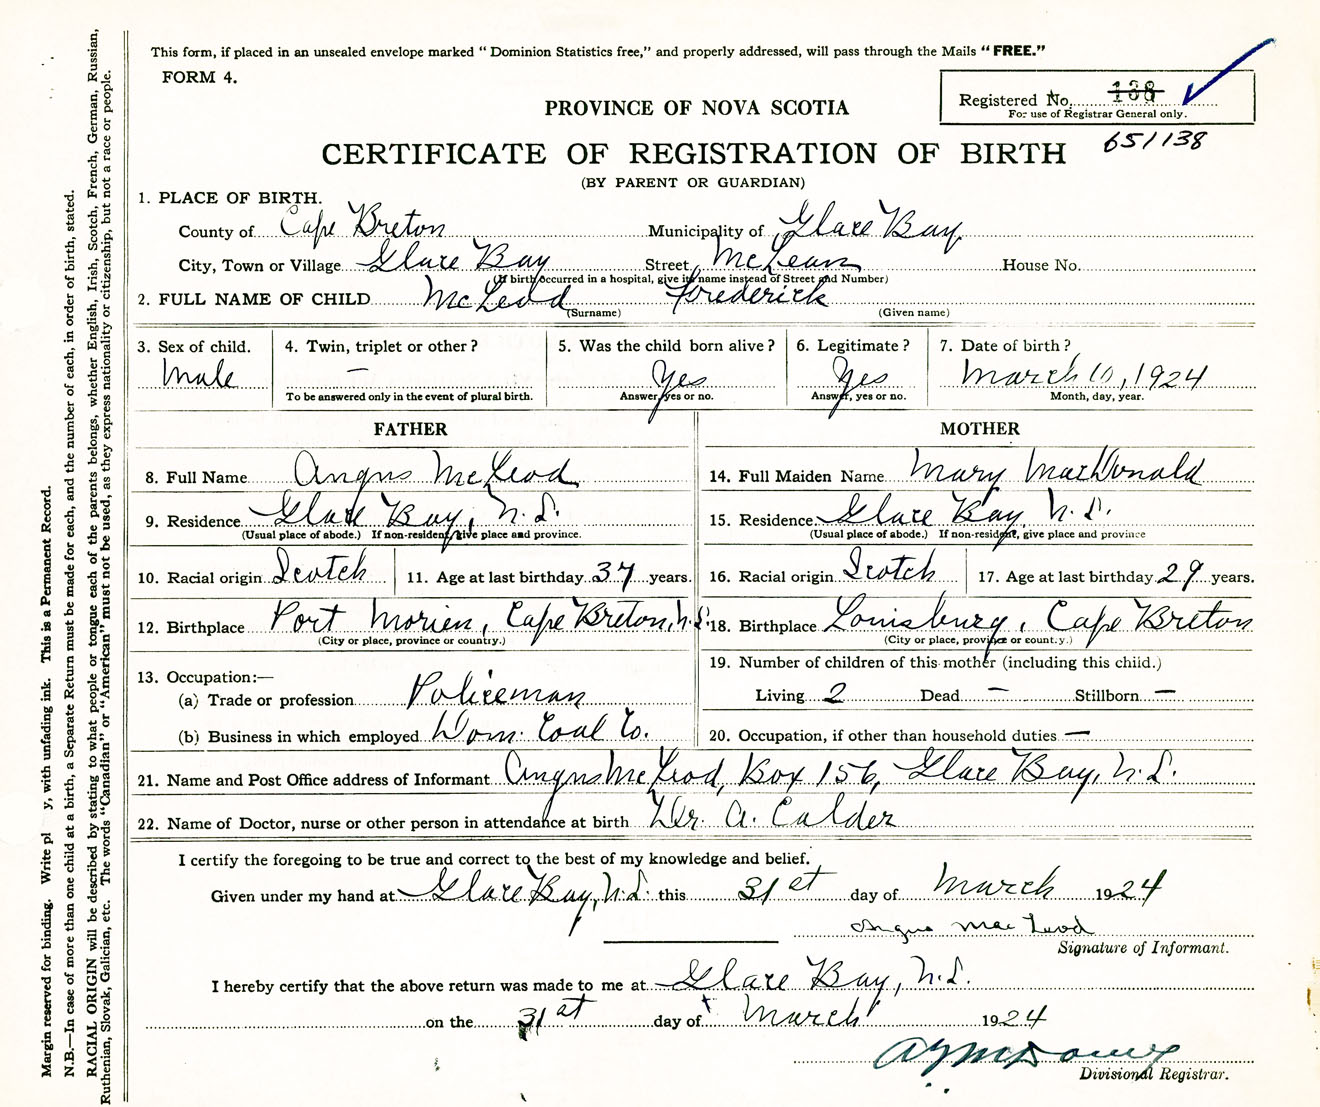 This form, if placed in an unsealed envelope marked “ Dominion Statistics free,” and properly addressed, will pass through the Mails “ FREE.”
FORM 4.
Registered No. 138
For use of Registrar General only.
651138
PROVINCE OF NOVA SCOTIA
CERTIFICATE OF REGISTRATION OF BIRTH
(BY PARENT OR GUARDIAN)
1. PLACE OF BIRTH.
County of Cape Breton Municipality of Glace Bay
City, Town or Village Glace Bay Street McLean House No.
(If birth occurred in a hospital, give its name instead of Street and Number)
2. FULL NAME OF CHILD McLeod Frederick
(Surname) (Given name)
3. Sex of child. 4. Twin, triplet or other? 5. Was the child born alive? 6. Legitimate? 7. Date of birth?
Male — Yes Yes March 10, 1924
To be answered only in the event of plural birth. Answer, yes or no. Answer, yes or no. Month, day, year.
FATHER MOTHER
8. Full Name Angus McLeod 14. Full Maiden Name Mary MacDonald
9. Residence Glace Bay, N.S. 15. Residence Glace Bay N.S.
(Usual place of abode.) If non-resident, give place and province. (Usual place of abode.) If non-resident, give place and province
10. Racial origin Scotch 11. Age at last birthday 37 years. 16. Racial origin Scotch 17. Age at last birthday 29 years.
12. Birthplace Port Morien, Cape Breton, N.S. 18. Birthplace Louisburg, Cape Breton
(City or place, province or country.) (City or place, province or country.)
19. Number of children of this mother (including this child.)
13. Occupation:—
(a) Trade or profession Policeman Living 2 Dead — Stillborn —
(b) Business in which employed Dom. Coal Co. 20. Occupation, if other than household duties —
21. Name and Post Office address of Informant Angus McLeod, Box 156, Glace Bay, N.S.
22. Name of Doctor, nurse or other person in attendance at birth Dr. A. Calder
I certify the foregoing to be true and correct to the best of my knowledge and belief.
Given under my hand at Glace Bay, N.S. this 31st day of March 1924
Angus MacLeod
Signature of Informant.
I hereby certify that the above return was made to me at Glace Bay, N.S.
on the 31st day of March 1924
Divisional Registrar.
Margin reserved for binding. Write pl y, with unfading ink. This is a Permanent Record.
N.B.—In case of more than one child at a birth, a Separate Return must be made for each, and the number of each, in order of birth, stated.
RACIAL ORIGIN will be described by stating to what people or tongue each of the parents belongs, whether English, Irish, Scotch, French, German, Russian,
Ruthenian, Slovak, Galician, etc. The words “Canadian” or “American” must not be used, as they express nationality or citizenship, but not a race or people.